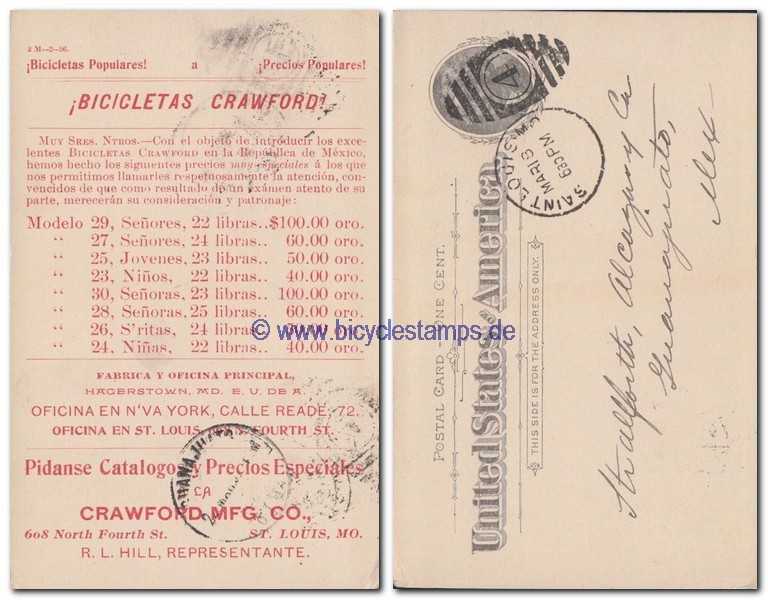 2 M—2—96.
¡Bicicletas Populares! a ¡Precios Populares!
¡BICICLETAS CRAWFORD!
MUY SRES. NTROS.—Con el objeto de introducir los exce-
lentes BICICLETAS CRAWFORD en la República de México,
hemos hecho los siguientes precios muy especiales á los que
nos permitimos llamarles respetuosamente la atención, con-
vencidos de que como resultado de un exámen atento de su
parte, merecerán su consideración y patronaje:
Modelo 29, Señores, 22 libras..$100.00 oro.
“ 27, Señores, 24 libras.. 60.00 oro.
“ 25, Jovenes, 23 libras.. 50.00 oro.
“ 23, Niños, 22 libras.. 40.00 oro.
“ 30, Señoras, 23 libras.. 100.00 oro.
“ 28, Señoras, 25 libras.. 60.00 oro.
“ 26, S'ritas, 24 libras.. oro.
“ 24, Niñas, 22 libras.. 40.00 oro.
© www.bicyclestamps.de
FABRICA Y OFICINA PRINCIPAL,
HAGERSTOWN, MD. E. U. DE A.
OFICINA EN N'VA YORK, CALLE READE, 72.
OFICINA EN ST. LOUIS, FOURTH ST.
Pidanse Catalogo y Precios Especiales
LA
CRAWFORD MFG. CO.,
608 North Fourth St. ST. LOUIS, MO.
R. L. HILL, REPRESENTANTE.
GUANAJUATO
POSTAL CARD—ONE CENT.
United States of America
THIS SIDE IS FOR THE ADDRESS ONLY.
4
SAINT LOUIS MO
MAR 15
630PM
Stallforth, Alcazar y Ca
Guanajuato,
Mex—